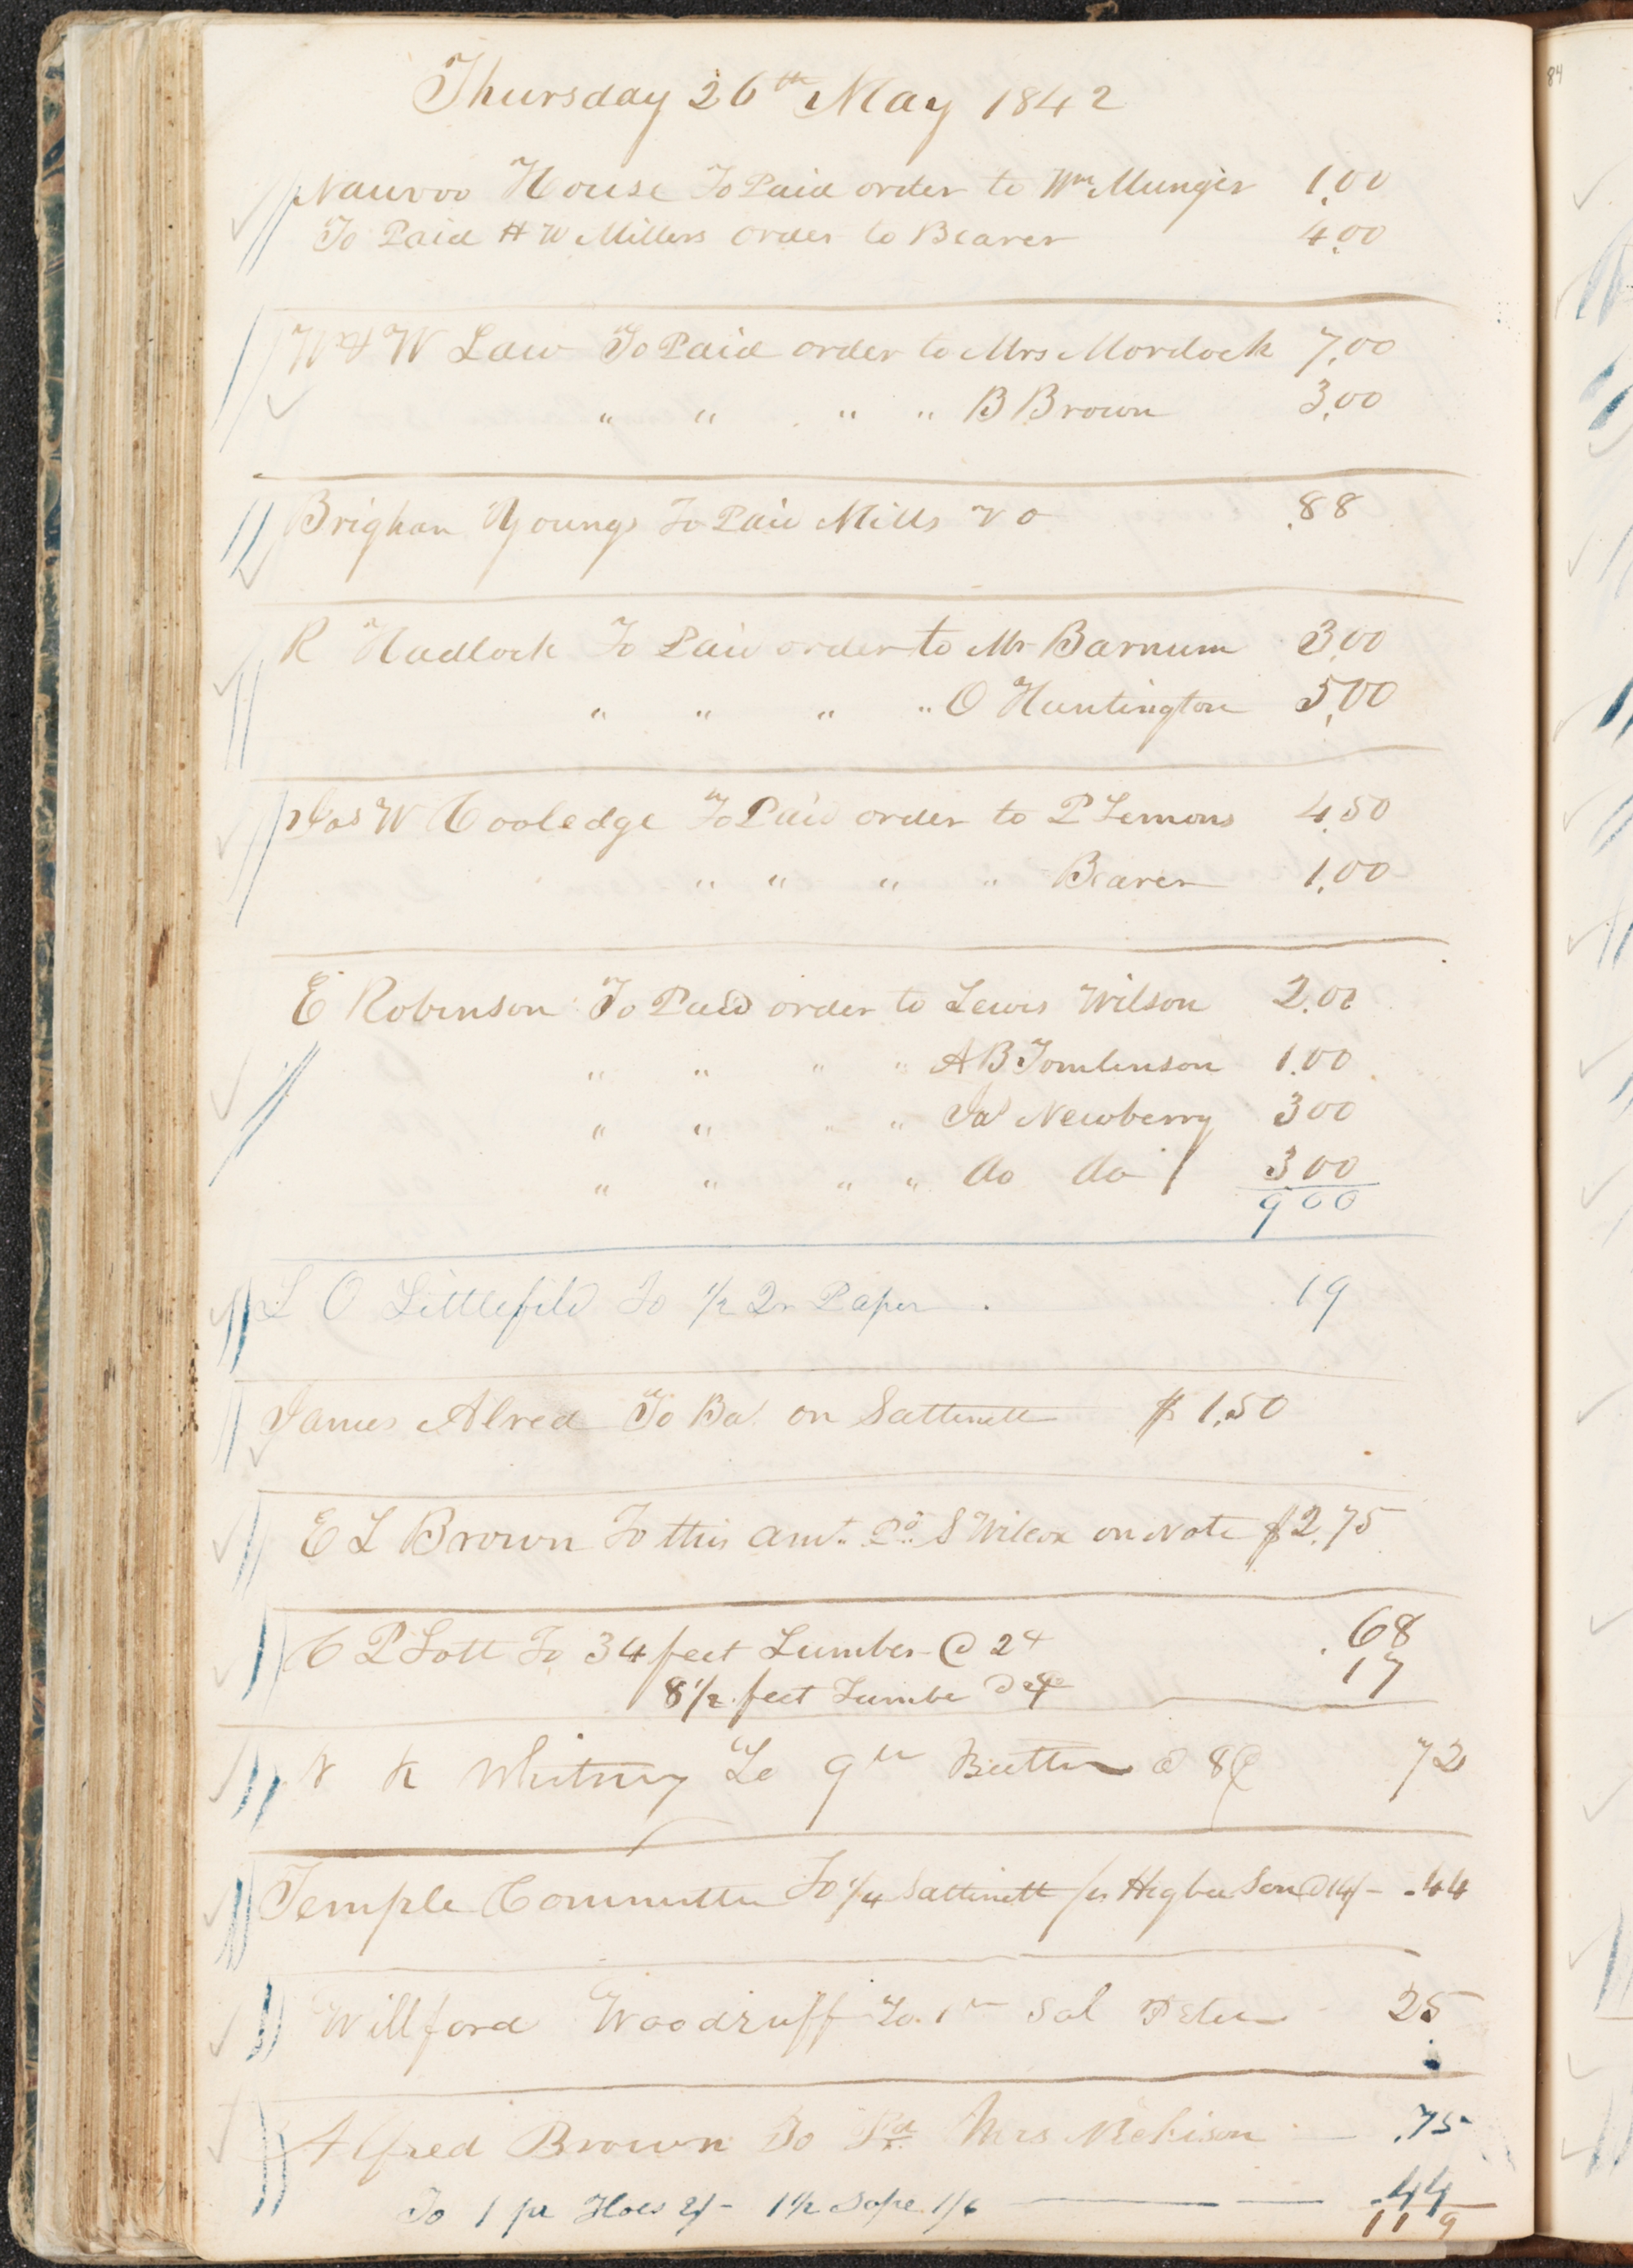 Thursday 26th May 1842
Nauvoo House To Paid order to Wm Munger 1,00
To Paid H W Millers order to Bearer 4,00
W & W Law To Paid order to Mrs Mordock 7,00
" " " " B Brown 3,00
Brighan Youngs To Paid Mills .88
R Hadlock To Paid order to Mr Barnum 3,00
" " " " O Huntington 5,00
Jos W Cooledge To Paid order to P Lemons 4,50
" " " " Bearer 1,00
E Robinson To Paid order to Lewis Wilson 2.00
" " " " A B Tomlinson 1.00
" " " " Ja Newberry 3 00
" " " " do do 3 00
9 00
L O Littlefild To 1/2 Qr Paper . 19
James Alred To Ba on Sattinett $ 1,50
E L Brown To this amt. Pd. S Wilcox on Note $2.75
C P Lott To 34 feet Lumber @ 2 .68
8 1/2 feet Lumbe @ 17
N K Whitney To 9 lb Butter @ 8c 72
Temple Committee To 1/4 Sattinett for Higbee Son @ 14/- .44
Willford Woodruff To 1 lb Sal Peter 25
Alfred Brown To Pd Mrs .75
To 1 pr Hoes 2/- 1 1/2 Sope 1/6 .44
1 1 9
84